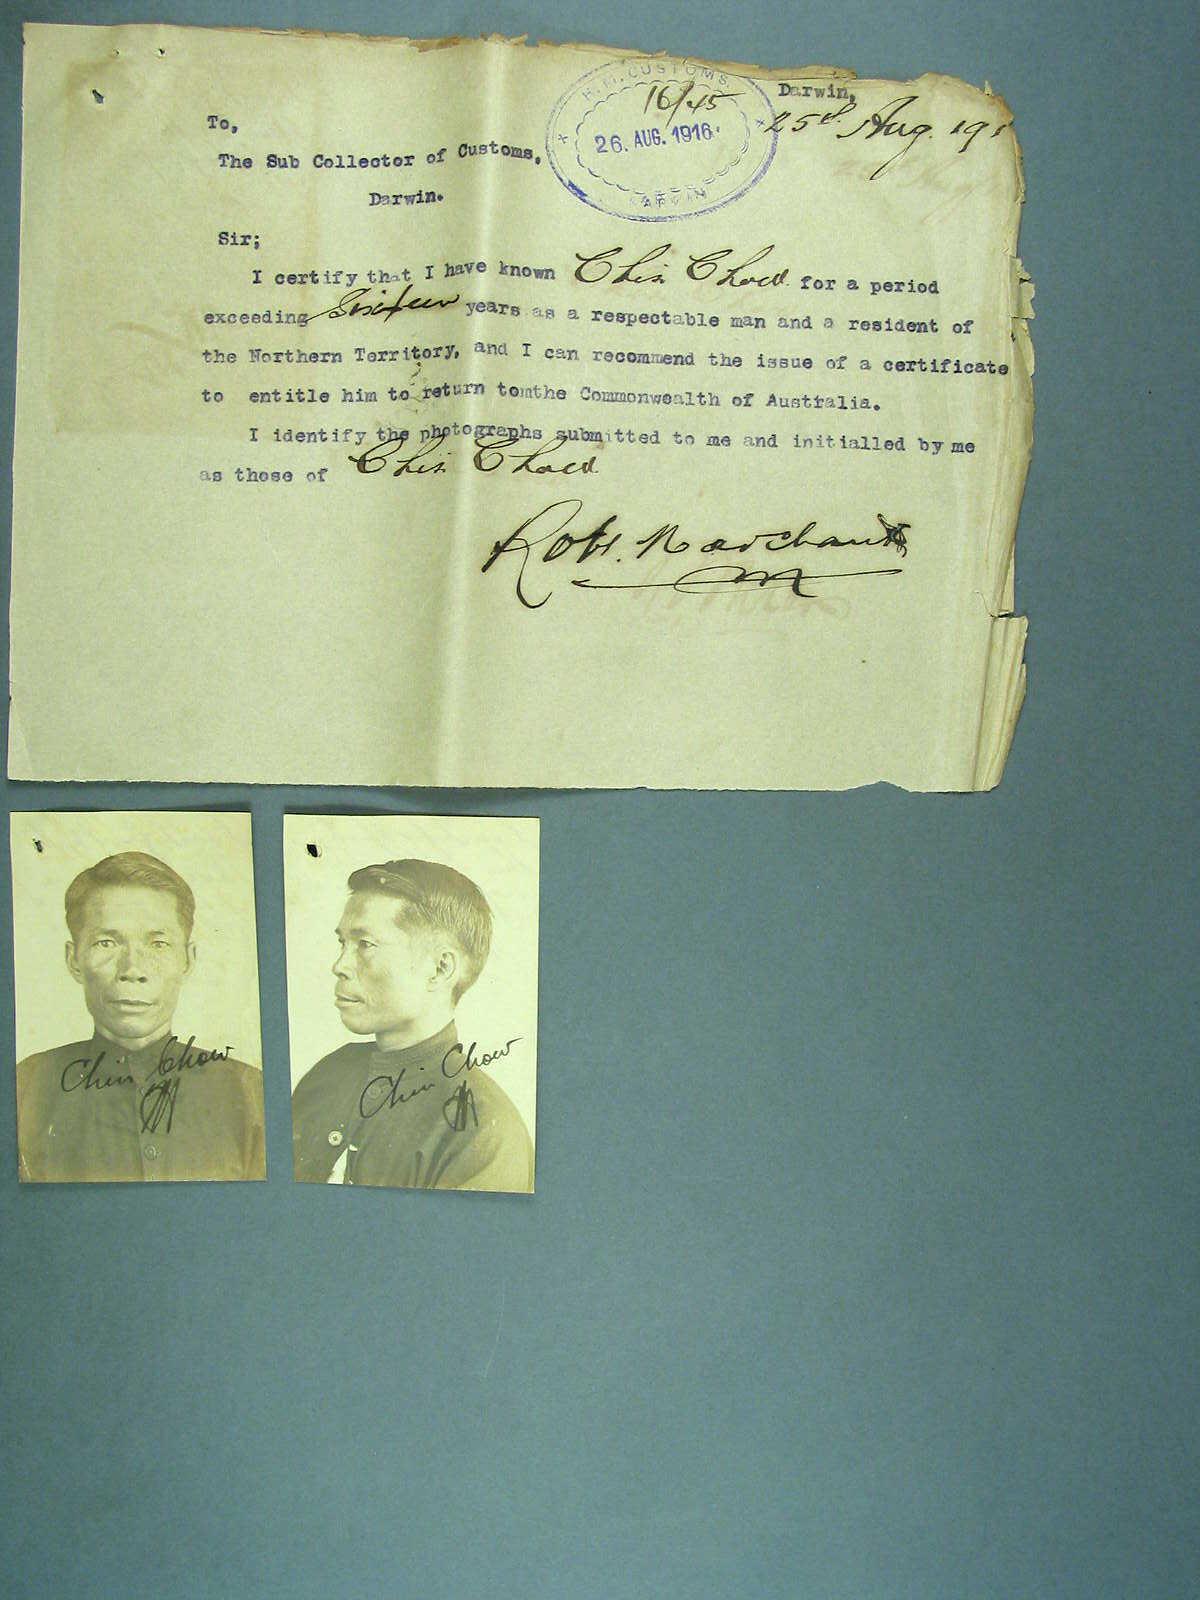 H.M. CUSTOMS
16/45
26. AUG. 1916
DARWIN
Darwin,
25th Aug. 191
To,
The Sub Collector of Customs,
Darwin.
Sir;
I certify that I have known Chin Chow for a period
exceeding Sixteen years as a respectable man and a resident of
the Northern Territory, and I can recommend the issue of a certificate
to entitle him to return tomthe Commonwealth of Australia.
I identify the photographs submitted to me and initialled by me
as those of Chin Chow
Robt. Marchant
Chin Chow
Chin Chow